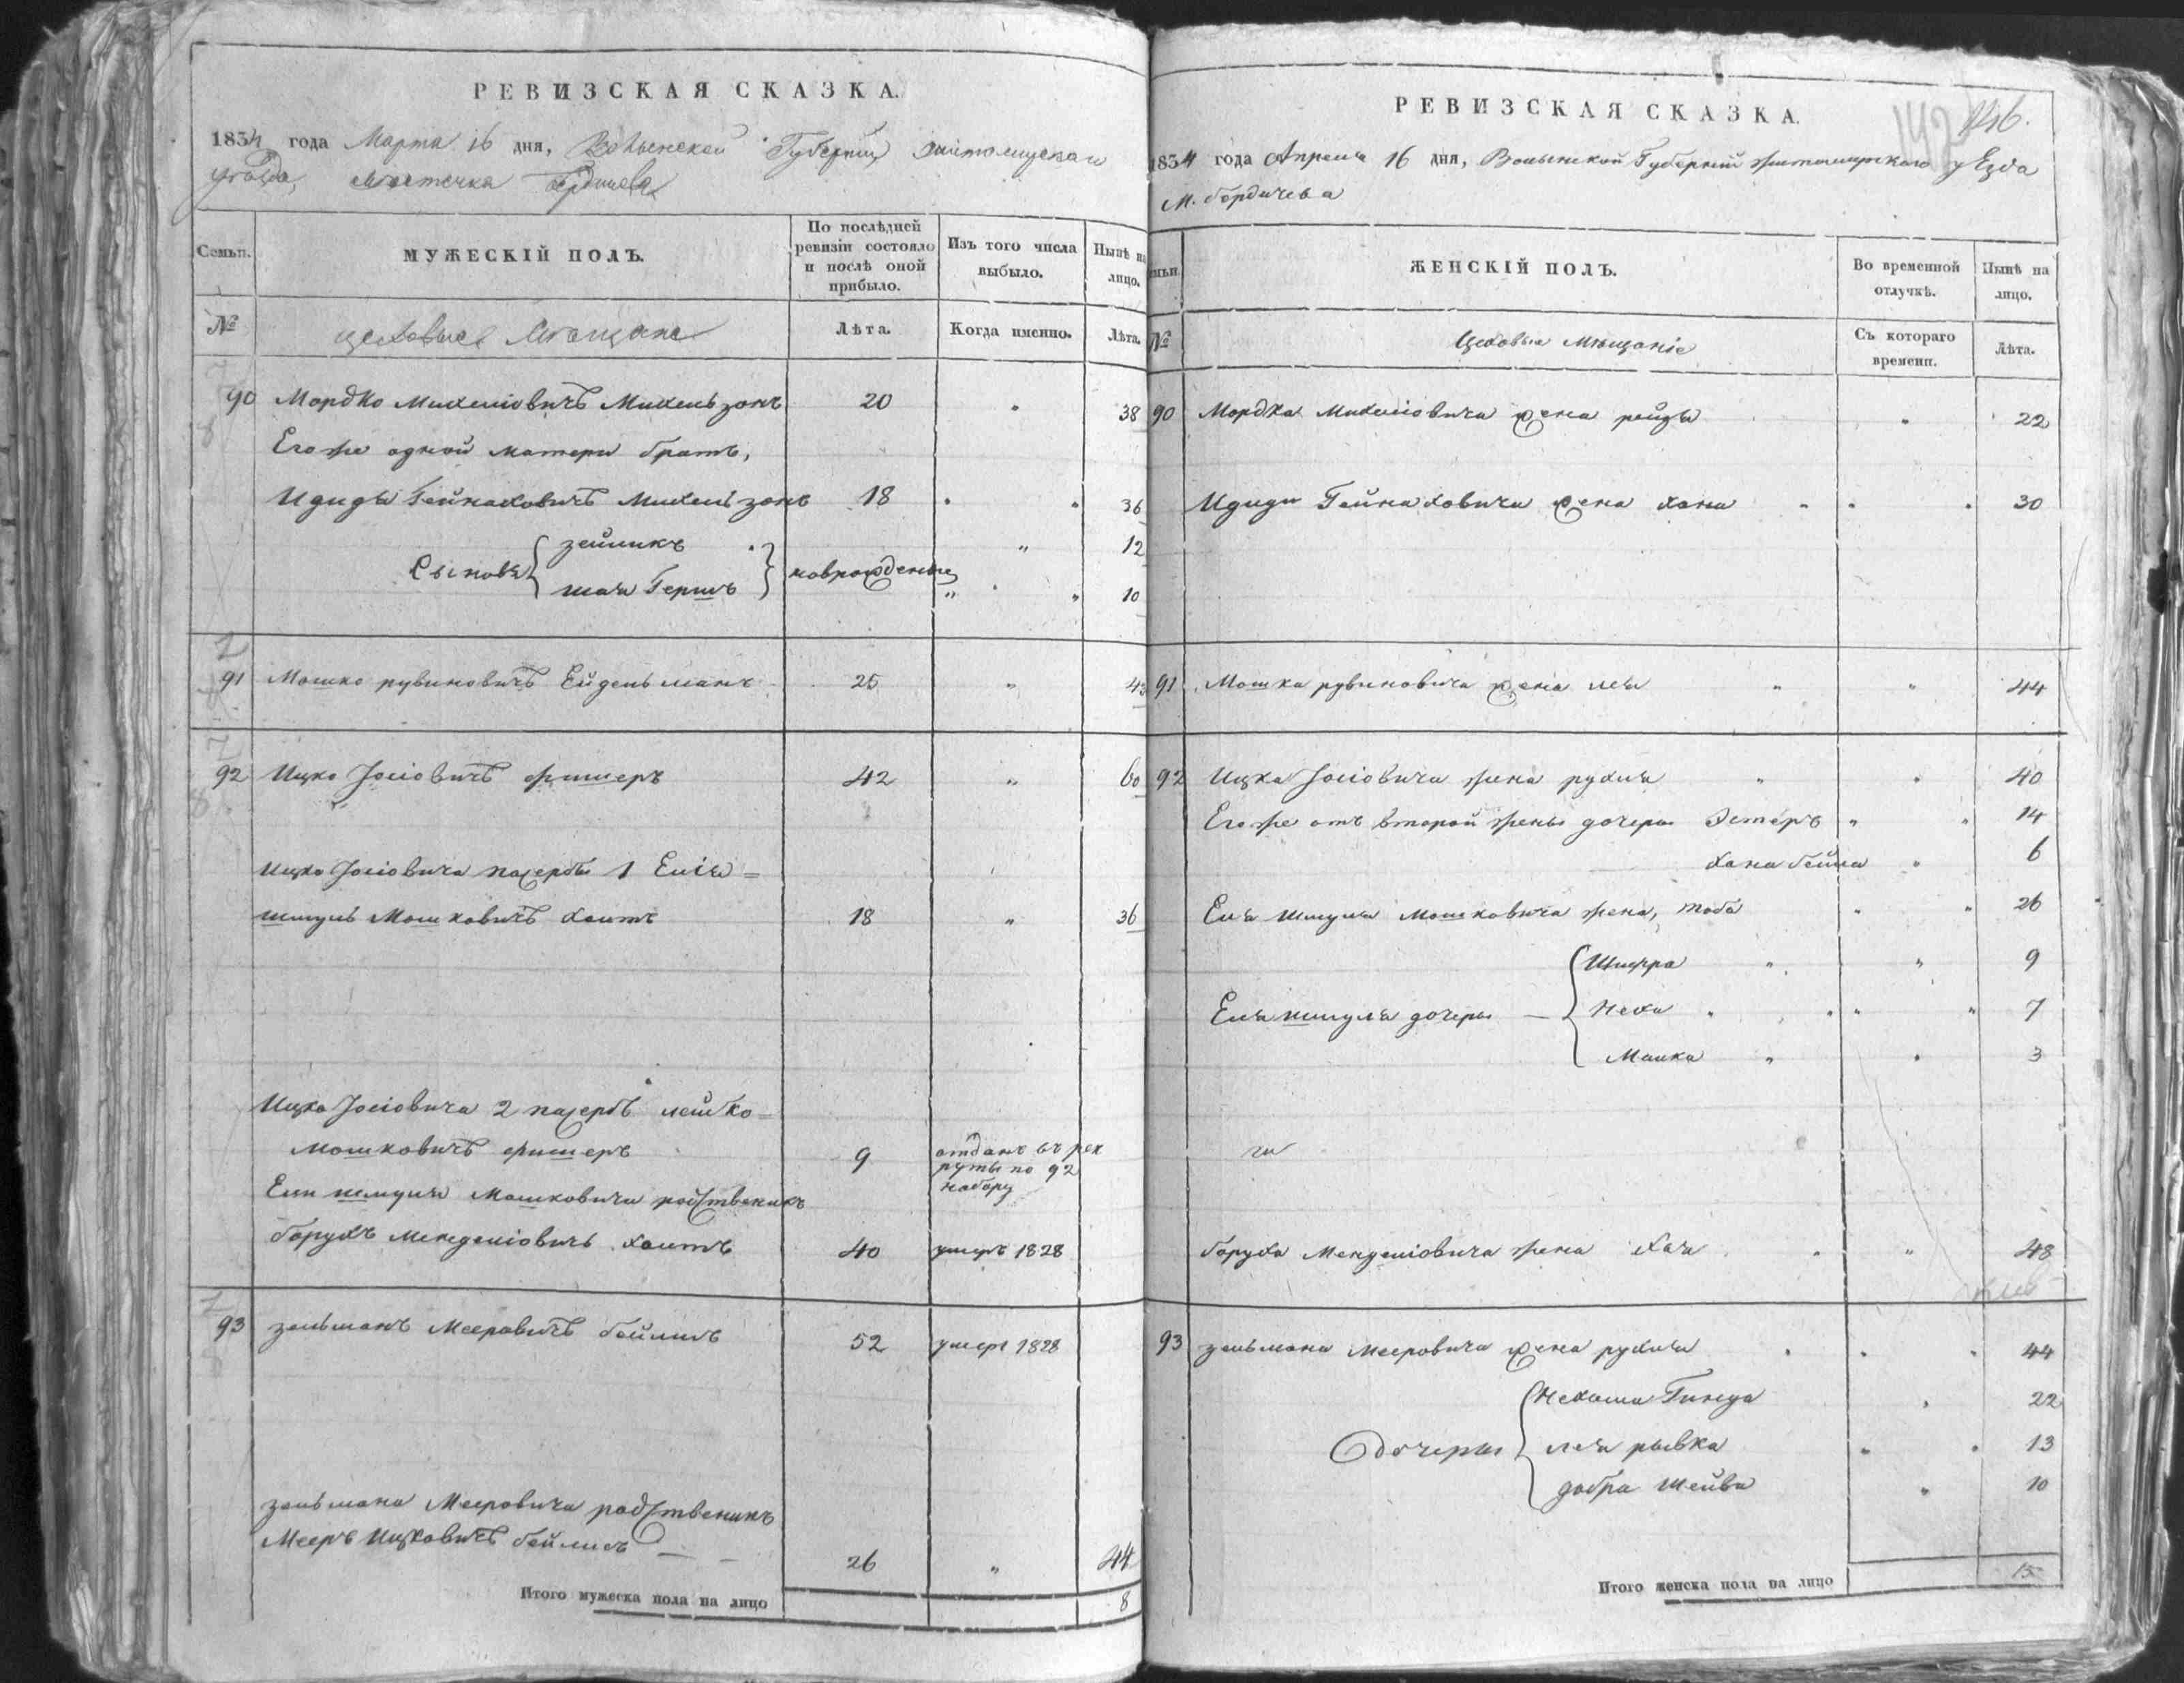 РЕВИЗСКАЯ СКАЗКА.
1834 года Марта 16 дня, Волынской Губернии Житомирскаго
уезда, Местечка Бердичева
Семьи. МУЖЕСКІЙ ПОЛЪ. По послѣдней ревизіи состояло и послѣ оной прибыло. Изъ того числа выбыло. Нынѣ на лицо.
№ цеховые Мещане Лѣта. Когда именно. Лѣта.
90 Мордко Михелiовичъ Михельзонъ 20 " 38
Его же одной матери братъ,
Идиды Гейнаховичъ Михельзонъ 18 " " 36
Сыновя { зейликъ " 12
шая Гершъ } новрожденые " " 10
91 Мошко рувиновичъ Ейдельманъ 25 " 43
92 Ицко Іосіовичъ фишеръ 42 " 60
Ицка Іосіовича пасербъ 1 Еліа =
шмуль Мошковичъ хаитъ 18 " 36
Ицка Іосіовича 2 пасербъ лейбко =
мошковичъ фишеръ 9 отданъ въ рек
руты по 92
набору
Еля шмуля Мошковича родственикъ
борухъ Менделіовичъ хаитъ 40 умеръ 1828
93 зельманъ Мееровичъ бейлисъ 52 умеръ 1828
зельмана Мееровича родственикъ
Мееръ Ицковичъ бейлисъ — — 26 " 44
Итого мужеска пола на лицо 8
146.
142
РЕВИЗСКАЯ СКАЗКА.
1834 года Апреля 16 дня, Волынской Губерніи житомирскаго уезда
м. бердичева
Семьи. ЖЕНСКІЙ ПОЛЪ. Во временной отлучкѣ. Нынѣ на лицо.
№ Цеховые мещаніе Съ котораго времени. Лѣта.
90 Мордка Михелiовича жена рейзя " 22
Идиди Гейнаховича жена хана " " " 30
91 Мошка рувиновича жена лея " " 44
92 Ицка Іосіовича жена рухля " " 40
Его же отъ второй жены дочеры Эстеръ " " 14
хана бейла " 6
Еля шмуля мошковича жена, тоба " " 26
{ Шифра " " 9
Еля шмуля дочеры — { Неха " " " " 7
{ Малка " " 3
боруха Менделіовича жена хая " " 48
93 зельмана мееровича жена рухля " " " 44
{ Нехама Гинда " 22
дочеры { лея рывка " " 13
{ добра шейва " 10
Итого женска пола на лицо 15